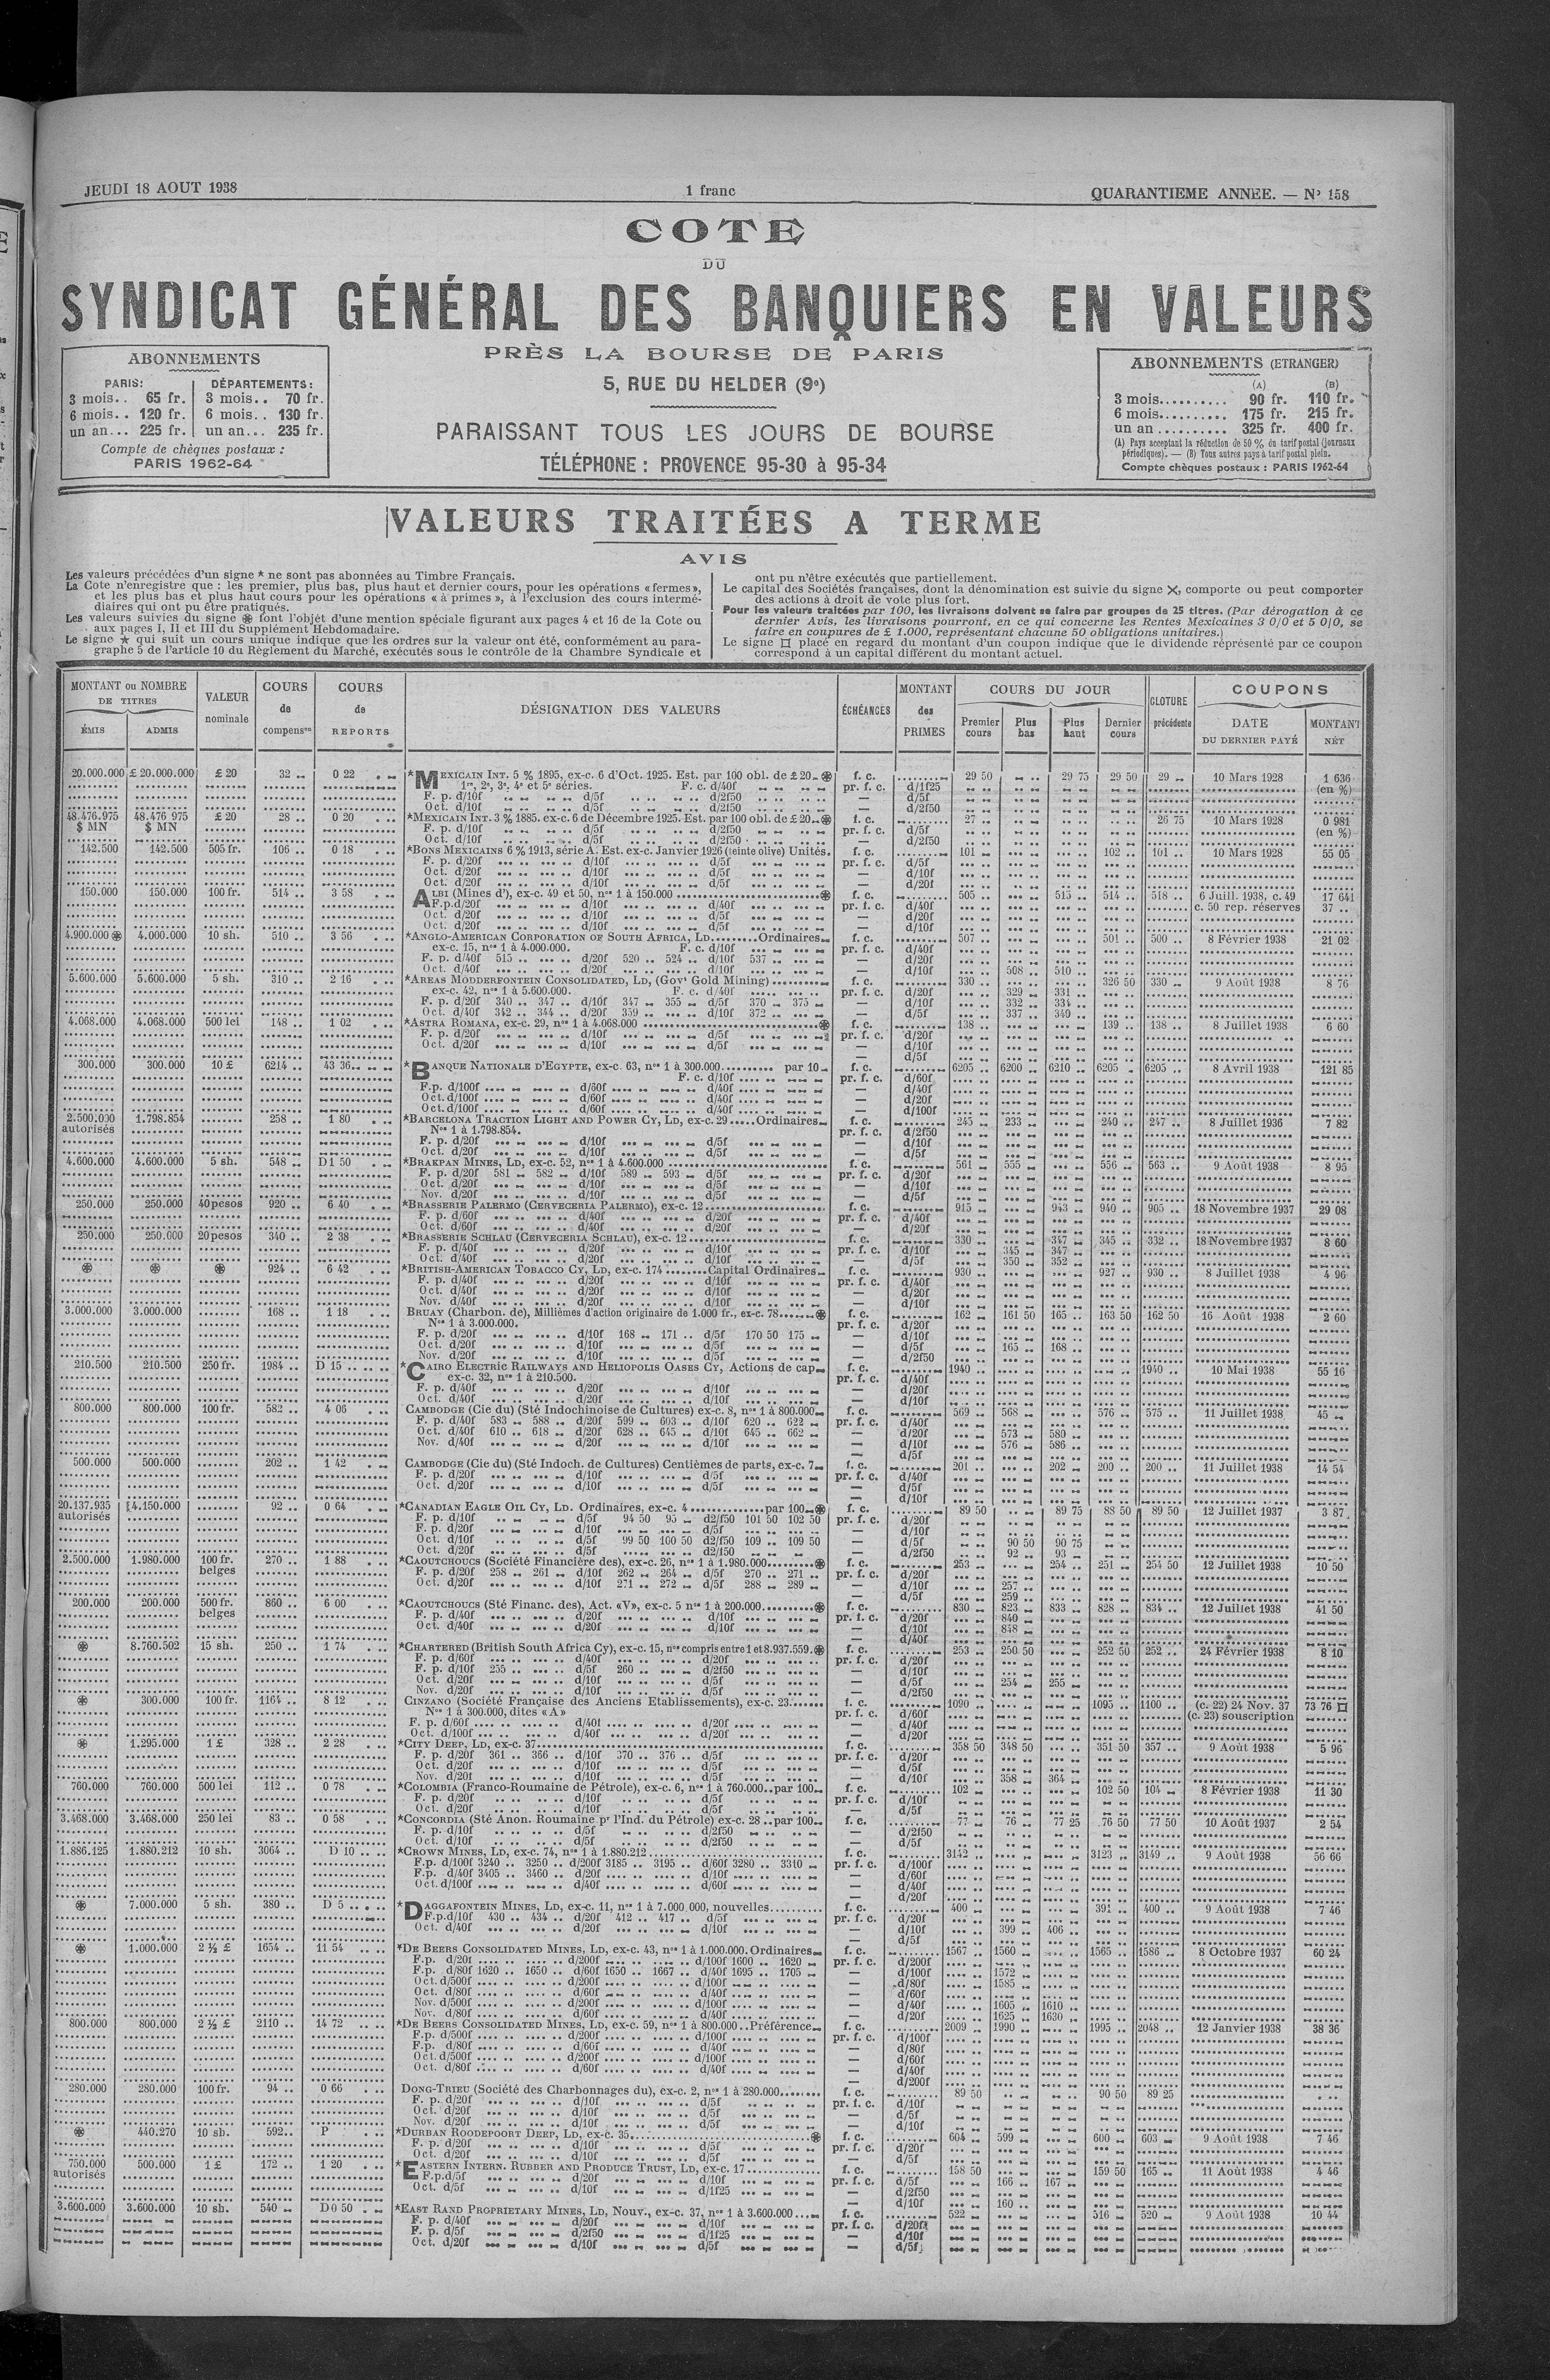 JEUDI 18 AOUT 1938
1 franc
QUARANTIEME ANNEE. — N° 158
COTE
DU
SYNDICAT GÉNÉRAL DES BANQUIERS EN VALEURS
PRÈS LA BOURSE DE PARIS
5, RUE DU HELDER (9e)
PARAISSANT TOUS LES JOURS DE BOURSE
TÉLÉPHONE : PROVENCE 95-30 à 95-34
ABONNEMENTS
PARIS: DÉPARTEMENTS:
3 mois.. 65 fr. 3 mois.. 70 fr.
6 mois.. 120 fr. 6 mois.. 130 fr.
un an... 225 fr. un an... 235 fr.
Compte de chèques postaux :
PARIS 1962-64
ABONNEMENTS (ETRANGER)
(A) (B)
3 mois.......... 90 fr. 110 fr.
6 mois.......... 175 fr. 215 fr.
un an .......... 325 fr. 400 fr.
(A) Pays acceptant la réduction de 50 % du tarif postal (journaux
périodiques). — (B) Tous autres pays à tarif postal plein.
Compte chèques postaux : PARIS 1962-64
VALEURS TRAITÉES A TERME
AVIS
Les valeurs précédées d'un signe * ne sont pas abonnées au Timbre Français.
La Cote n'enregistre que : les premier, plus bas, plus haut et dernier cours, pour les opérations « fermes »,
et les plus bas et plus haut cours pour les opérations « à primes », à l'exclusion des cours intermé-
diaires qui ont pu être pratiqués.
Les valeurs suivies du signe ⊛ font l'objet d'une mention spéciale figurant aux pages 4 et 16 de la Cote ou
aux pages I, II et III du Supplément Hebdomadaire.
Le signe ★ qui suit un cours unique indique que les ordres sur la valeur ont été, conformément au para-
graphe 5 de l'article 10 du Règlement du Marché, exécutés sous le contrôle de la Chambre Syndicale et
ont pu n'être exécutés que partiellement.
Le capital des Sociétés françaises, dont la dénomination est suivie du signe ×, comporte ou peut comporter
des actions à droit de vote plus fort.
Pour les valeurs traitées par 100, les livraisons doivent se faire par groupes de 25 titres. (Par dérogation à ce
dernier Avis, les livraisons pourront, en ce qui concerne les Rentes Mexicaines 3 0/0 et 5 0/0, se
faire en coupures de £ 1.000, représentant chacune 50 obligations unitaires.)
Le signe □ placé en regard du montant d'un coupon indique que le dividende représenté par ce coupon
correspond à un capital différent du montant actuel.
MONTANT ou NOMBRE DE TITRES
ÉMIS ADMIS
VALEUR nominale
COURS de compenson
COURS de REPORTS
DÉSIGNATION DES VALEURS
ÉCHÉANCES
MONTANT des PRIMES
COURS DU JOUR
Premier cours Plus bas Plus haut Dernier cours
CLOTURE précédente
COUPONS
DATE DU DERNIER PAYÉ MONTANT NET
20.000.000 £ 20.000.000 £ 20 32 .. 0 22 *MEXICAIN INT. 5 % 1895, ex-c. 6 d'Oct. 1925. Est. par 100 obl. de £ 20 ⊛ f. c. 29 50 29 75 29 50 29 .. 10 Mars 1928 1 636
1re, 2e, 3e, 4e et 5e séries. F. c. d/40f pr. f. c. d/1f25 (en %)
F. p. d/10f d/5f d/2f50 — d/5f
Oct. d/10f d/5f d/2f50 — d/2f50
48.476.975 48.476 975 £ 20 28 .. 0 20 *MEXICAIN INT. 3 % 1885. ex-c. 6 de Décembre 1925. Est. par 100 obl. de £ 20 ⊛ f. c. 27 .. 26 75 10 Mars 1928 0 981
$ MN $ MN F. p. d/10f d/5f d/2f50 pr. f. c. d/5f (en %)
Oct. d/10f d/5f d/2f50 — d/2f50
142.500 142.500 505 fr. 106 .. 0 18 *BONS MEXICAINS 6 % 1913, série A. Est. ex-c. Janvier 1926 (teinte olive) Unités. f. c. 101 .. 102 .. 101 .. 10 Mars 1928 55 05
F. p. d/20f d/10f d/5f pr. f. c. d/5f
Oct. d/20f d/10f d/5f — d/10f
Oct. d/20f d/10f d/5f — d/20f
150.000 150.000 100 fr. 514 .. 3 58 ALBI (Mines d'), ex-c. 49 et 50, nos 1 à 150.000 ⊛ f. c. 505 .. 515 .. 514 .. 518 .. 6 Juill. 1938, c. 49 17 641
F.p.d/20f d/10f d/40f pr. f. c. d/40f c. 50 rep. réserves 37 ..
Oct. d/20f d/10f d/5f — d/20f
Oct. d/20f d/10f d/5f — d/10f
4.900.000 ⊛ 4.000.000 10 sh. 510 .. 3 56 *ANGLO-AMERICAN CORPORATION OF SOUTH AFRICA, LD........Ordinaires f. c. 507 .. 501 .. 500 .. 8 Février 1938 21 02
ex-c. 15, nos 1 à 4.000.000. F. c. d/10f pr. f. c. d/40f
F. p. d/40f 515 .. d/20f 520 .. 524 .. d/10f 537 .. — d/20f
Oct. d/40f d/20f d/10f — d/10f 508 .. 510 ..
5.600.000 5.600.000 5 sh. 310 .. 2 16 *AREAS MODDERFONTEIN CONSOLIDATED, LD, (Govt Gold Mining) f. c. 330 .. 326 50 330 .. 9 Août 1938 8 76
ex-c. 42, nos 1 à 5.600.000. F. c. d/40f pr. f. c. d/20f 329 .. 331 ..
F. p. d/20f 340 .. 347 .. d/10f 347 .. 355 .. d/5f 370 .. 375 .. — d/10f 332 .. 334 ..
Oct. d/40f 342 .. 344 .. d/20f 359 .. d/10f 372 .. — d/5f 337 .. 340 ..
4.068.000 4.068.000 500 lei 148 .. 1 02 *ASTRA ROMANA, ex-c. 29, nos 1 à 4.068.000 ⊛ f. c. 138 .. 139 .. 138 .. 8 Juillet 1938 6 60
F. p. d/20f d/10f d/5f pr. f. c. d/20f
Oct. d/20f d/10f d/5f — d/10f
— d/5f
300.000 300.000 10 £ 6214 .. 43 36 *BANQUE NATIONALE D'EGYPTE, ex-c. 63, nos 1 à 300.000 par 10 f. c. 6205 .. 6200 .. 6210 .. 6205 .. 6205 .. 8 Avril 1938 121 85
F. c. d/10f pr. f. c. d/60f
F.p. d/100f d/60f d/40f — d/40f
Oct. d/100f d/60f d/40f — d/20f
Oct. d/100f d/60f d/40f — d/100f
2.500.000 1.798.854 258 .. 1 80 *BARCELONA TRACTION LIGHT AND POWER CY, LD, ex-c. 29.....Ordinaires f. c. 245 .. 233 .. 240 .. 247 .. 8 Juillet 1936 7 82
autorisés Nos 1 à 1.798.854. pr. f. c. d/2f50
F. p. d/20f d/10f d/5f — d/10f
Oct. d/20f d/10f d/5f — d/5f
4.600.000 4.600.000 5 sh. 548 .. D 1 50 *BRAKPAN MINES, LD, ex-c. 52, nos 1 à 4.600.000 f. c. 561 .. 555 .. 556 .. 563 .. 9 Août 1938 8 95
F. p. d/20f 581 .. 582 .. d/10f 589 .. 593 .. d/5f pr. f. c. d/20f
Oct. d/20f d/10f d/5f — d/10f
Nov. d/20f d/10f d/5f — d/5f
250.000 250.000 40 pesos 920 .. 6 40 *BRASSERIE PALERMO (CERVECERIA PALERMO), ex-c. 12 f. c. 915 .. 943 .. 940 .. 905 .. 18 Novembre 1937 29 08
F. p. d/60f d/40f d/20f pr. f. c. d/40f
Oct. d/60f d/40f d/20f — d/20f
250.000 250.000 20 pesos 340 .. 2 38 *BRASSERIE SCHLAU (CERVECERIA SCHLAU), ex-c. 12 f. c. 330 .. 347 .. 345 .. 332 .. 18 Novembre 1937 8 60
F. p. d/40f d/20f d/10f pr. f. c. d/10f 345 .. 347 ..
Oct. d/40f d/20f d/10f — d/5f 350 .. 352 ..
⊛ ⊛ ⊛ 924 .. 6 42 *BRITISH-AMERICAN TOBACCO CY, LD, ex-c. 174........Capital Ordinaires f. c. 930 .. 927 .. 930 .. 8 Juillet 1938 4 96
F. p. d/40f d/20f d/10f pr. f. c. d/40f
Oct. d/40f d/20f d/10f — d/20f
Nov. d/40f d/20f d/10f — d/10f
3.000.000 3.000.000 168 .. 1 18 BRUAY (Charbon. de), Millièmes d'action originaire de 1.000 fr., ex-c. 78 ⊛ f. c. 162 .. 161 50 165 .. 163 50 162 50 16 Août 1938 2 60
Nos 1 à 3.000.000. pr. f. c. d/20f
F. p. d/20f d/10f 168 .. 171 .. d/5f 170 50 175 .. — d/10f
Oct. d/20f d/10f d/5f — d/5f 165 .. 168 ..
Nov. d/20f d/10f d/5f — d/2f50
210.500 210.500 250 fr. 1984 .. D 15 .. *CAIRO ELECTRIC RAILWAYS AND HELIOPOLIS OASES CY, Actions de cap. f. c. 1940 .. 1940 .. 10 Mai 1938 55 16
ex-c. 32, nos 1 à 210.500. pr. f. c. d/40f
F. p. d/40f d/20f d/10f — d/20f
Oct. d/40f d/20f d/10f — d/10f
800.000 800.000 100 fr. 582 .. 4 06 CAMBODGE (Cie du) (Sté Indochinoise de Cultures) ex-c. 8, nos 1 à 800.000 f. c. 569 .. 568 .. 576 .. 575 .. 11 Juillet 1938 45 ..
F. p. d/40f 583 .. 588 .. d/20f 599 .. 603 .. d/10f 620 .. 622 .. pr. f. c. d/40f
Oct. d/40f 610 .. 618 .. d/20f 628 .. 645 .. d/10f 645 .. 662 .. — d/20f 573 .. 580 ..
Nov. d/40f d/20f d/10f — d/10f 576 .. 586 ..
— d/5f
500.000 500.000 202 .. 1 42 CAMBODGE (Cie du) (Sté Indoch. de Cultures) Centièmes de parts, ex-c. 7 f. c. 201 .. 202 .. 200 .. 200 .. 11 Juillet 1938 14 54
F. p. d/20f d/10f d/5f pr. f. c. d/40f
Oct. d/20f d/10f d/5f — d/5f
— d/10f
20.137.935 14.150.000 92 .. 0 64 *CANADIAN EAGLE OIL CY, LD. Ordinaires, ex-c. 4 par 100 ⊛ f. c. 89 50 89 75 88 50 89 50 12 Juillet 1937 3 87
autorisés F. p. d/10f d/5f 94 50 95 .. d2/f50 101 50 102 50 pr. f. c. d/20f
F. p. d/20f d/10f d/5f — d/10f
Oct. d/10f d/5f 99 50 100 50 d2/f50 109 .. 109 50 — d/5f 90 50 90 75
Oct. d/20f d/5f d2/f50 — d/2f50 92 .. 93 ..
2.500.000 1.980.000 100 fr. 270 .. 1 88 *CAOUTCHOUCS (Société Financière des), ex-c. 26, nos 1 à 1.980.000 ⊛ f. c. 253 .. 254 .. 251 .. 254 50 12 Juillet 1938 10 50
belges F. p. d/20f 258 .. 261 .. d/10f 262 .. 264 .. d/5f 270 .. 271 .. pr. f. c. d/20f
Oct. d/20f d/10f 271 .. 272 .. d/5f 288 .. 289 .. — d/10f 257 ..
— d/5f 259 ..
200.000 200.000 500 fr. 860 .. 6 00 *CAOUTCHOUCS (Sté Financ. des), Act. «V», ex-c. 5 nos 1 à 200.000 ⊛ f. c. 830 .. 823 .. 833 .. 828 .. 834 .. 12 Juillet 1938 41 50
belges F. p. d/40f d/20f d/10f pr. f. c. d/20f 840 ..
Oct. d/40f d/20f d/10f — d/10f 848 ..
— d/40f
⊛ 8.760.502 15 sh. 250 .. 1 74 *CHARTERED (British South Africa Cy), ex-c. 15, nos compris entre 1 et 8.937.559. ⊛ f. c. 253 .. 250 50 252 50 252 .. 24 Février 1938 8 10
F. p. d/60f d/40f d/20f pr. f. c. d/20f
F. p. d/10f 255 .. d/5f 260 .. d/2f50 — d/10f
Oct. d/20f d/10f d/5f — d/5f 254 .. 255 ..
Nov. d/20f d/10f d/5f — d/2f50
⊛ 300.000 100 fr. 1164 .. 8 12 CINZANO (Société Française des Anciens Etablissements), ex-c. 23 f. c. 1090 .. 1095 .. 1100 .. (c. 22) 24 Nov. 37 73 76 □
Nos 1 à 300.000, dites «A» pr. f. c. d/60f (c. 23) souscription
F. p. d/60f d/40f d/20f — d/40f
Oct. d/100f d/40f d/20f — d/20f
⊛ 1.295.000 1 £ 328 .. 2 28 *CITY DEEP, LD, ex-c. 37 f. c. 358 50 348 50 351 50 357 .. 9 Août 1938 5 96
F. p. d/20f 361 .. 366 .. d/10f 370 .. 376 .. d/5f pr. f. c. d/20f
Oct. d/20f d/10f d/5f — d/5f
Nov. d/20f d/10f d/5f — d/10f 358 .. 364 ..
760.000 760.000 500 lei 112 .. 0 78 *COLOMBIA (Franco-Roumaine de Pétrole), ex-c. 6, nos 1 à 760.000..par 100 f. c. 102 .. 102 50 104 .. 8 Février 1938 11 30
F. p. d/20f d/10f d/5f pr. f. c. d/10f
Oct. d/20f d/10f d/5f — d/5f
3.468.000 3.468.000 250 lei 83 .. 0 58 *CONCORDIA (Sté Anon. Roumaine pr l'Ind. du Pétrole) ex-c. 28 ..par 100 f. c. 77 .. 76 .. 77 25 76 50 77 50 10 Août 1937 2 54
F. p. d/10f d/5f d/2f50 — d/2f50
Oct. d/10f d/5f d/2f50 — d/5f
1.886.125 1.880.212 10 sh. 3064 .. D 10 .. *CROWN MINES, LD, ex-c. 74, nos 1 à 1.880.212 f. c. 3142 .. 3123 .. 3149 .. 9 Août 1938 56 66
F.p. d/100f 3240 .. 3250 .. d/200f 3185 .. 3195 .. d/60f 3280 .. 3310 .. pr. f. c. d/100f
F.p. d/40f 3405 .. 3460 .. d/20f d/10f — d/60f
Oct. d/100f d/40f d/60f — d/40f
— d/20f
⊛ 7.000.000 5 sh. 380 .. D 5 .. *DAGGAFONTEIN MINES, LD, ex-c. 11, nos 1 à 7.000.000, nouvelles f. c. 400 .. 391 .. 400 .. 9 Août 1938 7 46
F.p.d/10f 430 .. 434 .. d/20f 412 .. 417 .. d/5f pr. f. c. d/20f
Oct. d/40f d/20f d/10f — d/10f 399 .. 406 ..
— d/5f
⊛ 1.000.000 2 ½ £ 1654 .. 11 54 *DE BEERS CONSOLIDATED MINES, LD, ex-c. 43, nos 1 à 1.000.000. Ordinaires f. c. 1567 .. 1560 .. 1565 .. 1586 .. 8 Octobre 1937 60 24
F.p. d/20f d/200f d/100f 1600 .. 1620 .. pr. f. c. d/200f
F.p. d/80f 1620 .. 1650 .. d/60f 1650 .. 1667 .. d/40f 1695 .. 1705 .. — d/100f 1572 ..
Oct. d/500f d/200f d/100f — d/80f 1585 ..
Oct. d/80f d/60f d/40f — d/60f
Nov. d/500f d/200f d/100f — d/40f 1605 .. 1610 ..
Nov. d/80f d/60f d/40f — d/20f 1625 .. 1630 ..
800.000 800.000 2 ½ £ 2110 .. 14 72 *DE BEERS CONSOLIDATED MINES, LD, ex-c. 59, nos 1 à 800.000..Préférence f. c. 2009 .. 1990 .. 1995 .. 2048 .. 12 Janvier 1938 38 36
F.p. d/500f d/200f d/100f pr. f. c. d/100f
F.p. d/80f d/60f d/40f — d/80f
Oct. d/500f d/200f d/100f — d/60f
Oct. d/80f d/60f d/40f — d/40f
— d/200f
280.000 280.000 100 fr. 94 .. 0 66 DONG-TRIEU (Société des Charbonnages du), ex-c. 2, nos 1 à 280.000 f. c. 89 50 90 50 89 25
F. p. d/20f d/10f d/5f pr. f. c. d/10f
Oct. d/20f d/10f d/5f — d/5f
Nov. d/20f d/10f d/5f — d/10f
⊛ 440.270 10 sh. 592 .. P *DURBAN ROODEPOORT DEEP, LD, ex-c. 35 ⊛ f. c. 604 .. 599 .. 600 .. 603 .. 9 Août 1938 7 46
F. p. d/20f d/10f d/5f pr. f. c. d/20f
Oct. d/20f d/10f d/5f — d/5f
750.000 500.000 1 £ 172 .. 1 20 *EASTERN INTERN. RUBBER AND PRODUCE TRUST, LD, ex-c. 17 f. c. 158 50 159 50 165 .. 11 Août 1938 4 46
autorisés F.p.d/5f d/20f d/10f pr. f. c. d/5f 166 .. 167 ..
Oct. d/5f d/10f d/1f25 — d/2f50
— d/10f 160 ..
3.600.000 3.600.000 10 sh. 540 .. D 0 50 *EAST RAND PROPRIETARY MINES, LD, Nouv., ex-c. 37, nos 1 à 3.600.000 f. c. 522 .. 516 .. 520 .. 9 Août 1938 10 44
F. p. d/40f d/20f d/10f pr. f. c. d/20f
F. p. d/5f d/2f50 d/1f25 — d/10f
Oct. d/20f d/10f d/5f — d/5f